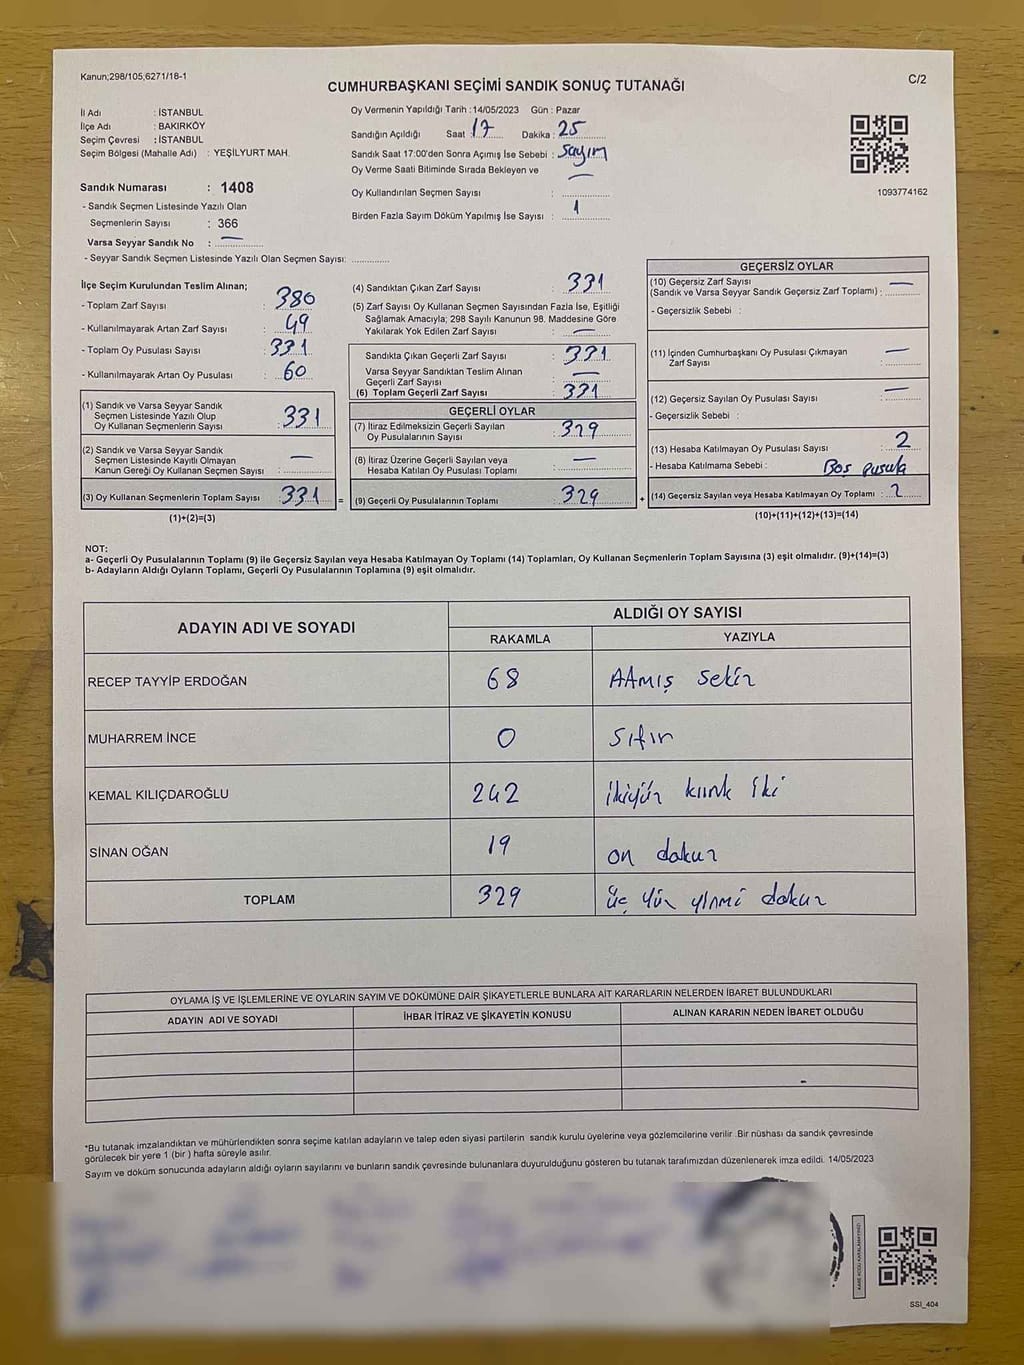 Kanun;298/105;6271/18-1
C/2
CUMHURBAŞKANI SEÇİMİ SANDIK SONUÇ TUTANAĞI
İl Adı : İSTANBUL
İlçe Adı : BAKIRKÖY
Seçim Çevresi : İSTANBUL
Seçim Bölgesi (Mahalle Adı) : YEŞİLYURT MAH.
Sandık Numarası : 1408
- Sandık Seçmen Listesinde Yazılı Olan
Seçmenlerin Sayısı : 366
Varsa Seyyar Sandık No : —
- Seyyar Sandık Seçmen Listesinde Yazılı Olan Seçmen Sayısı: ..............
Oy Vermenin Yapıldığı Tarih :14/05/2023 Gün : Pazar
Sandığın Açıldığı Saat :17 Dakika : 25
Sandık Saat 17:00'den Sonra Açımış İse Sebebi : Sayım
Oy Verme Saati Bitiminde Sırada Bekleyen ve —
Oy Kullandırılan Seçmen Sayısı :
Birden Fazla Sayım Döküm Yapılmış İse Sayısı : 1
1093774162
İlçe Seçim Kurulundan Teslim Alınan;
- Toplam Zarf Sayısı : 380
- Kullanılmayarak Artan Zarf Sayısı : 49
- Toplam Oy Pusulası Sayısı : 331
- Kullanılmayarak Artan Oy Pusulası : 60
(1) Sandık ve Varsa Seyyar Sandık
Seçmen Listesinde Yazılı Olup
Oy Kullanan Seçmenlerin Sayısı : 331
(2) Sandık ve Varsa Seyyar Sandık
Seçmen Listesinde Kayıtlı Olmayan
Kanun Gereği Oy Kullanan Seçmen Sayısı : —
(3) Oy Kullanan Seçmenlerin Toplam Sayısı : 331 =
(1)+(2)=(3)
(4) Sandıktan Çıkan Zarf Sayısı : 331
(5) Zarf Sayısı Oy Kullanan Seçmen Sayısından Fazla İse, Eşitliği
Sağlamak Amacıyla; 298 Sayılı Kanunun 98. Maddesine Göre
Yakılarak Yok Edilen Zarf Sayısı : —
Sandıkta Çıkan Geçerli Zarf Sayısı : 331
Varsa Seyyar Sandıktan Teslim Alınan
Geçerli Zarf Sayısı : —
(6) Toplam Geçerli Zarf Sayısı : 331
GEÇERLİ OYLAR
(7) İtiraz Edilmeksizin Geçerli Sayılan
Oy Pusulalarının Sayısı : 329
(8) İtiraz Üzerine Geçerli Sayılan veya
Hesaba Katılan Oy Pusulası Toplamı : —
(9) Geçerli Oy Pusulalarının Toplamı : 329 +
GEÇERSİZ OYLAR
(10) Geçersiz Zarf Sayısı
(Sandık ve Varsa Seyyar Sandık Geçersiz Zarf Toplamı) : —
- Geçersizlik Sebebi :
(11) İçinden Cumhurbaşkanı Oy Pusulası Çıkmayan
Zarf Sayısı : —
(12) Geçersiz Sayılan Oy Pusulası Sayısı : —
- Geçersizlik Sebebi :
(13) Hesaba Katılmayan Oy Pusulası Sayısı : 2
- Hesaba Katılmama Sebebi : Boş pusula
(14) Geçersiz Sayılan veya Hesaba Katılmayan Oy Toplamı : 2
(10)+(11)+(12)+(13)=(14)
NOT:
a- Geçerli Oy Pusulalarının Toplamı (9) ile Geçersiz Sayılan veya Hesaba Katılmayan Oy Toplamı (14) Toplamları, Oy Kullanan Seçmenlerin Toplam Sayısına (3) eşit olmalıdır. (9)+(14)=(3)
b- Adayların Aldığı Oyların Toplamı, Geçerli Oy Pusulalarının Toplamına (9) eşit olmalıdır.
ADAYIN ADI VE SOYADI
ALDIĞI OY SAYISI
RAKAMLA YAZIYLA
RECEP TAYYİP ERDOĞAN 68 AAmış sekiz
MUHARREM İNCE 0 sıfır
KEMAL KILIÇDAROĞLU 242 ikiyüz kırk iki
SİNAN OĞAN 19 on dokuz
TOPLAM 329 üç yüz yirmi dokuz
OYLAMA İŞ VE İŞLEMLERİNE VE OYLARIN SAYIM VE DÖKÜMÜNE DAİR ŞİKAYETLERLE BUNLARA AİT KARARLARIN NELERDEN İBARET BULUNDUKLARI
ADAYIN ADI VE SOYADI İHBAR İTİRAZ VE ŞİKAYETİN KONUSU ALINAN KARARIN NEDEN İBARET OLDUĞU
*Bu tutanak imzalandıktan ve mühürlendikten sonra seçime katılan adayların ve talep eden siyasi partilerin sandık kurulu üyelerine veya gözlemcilerine verilir .Bir nüshası da sandık çevresinde
görülecek bir yere 1 (bir ) hafta süreyle asılır.
Sayım ve döküm sonucunda adayların aldığı oyların sayılarını ve bunların sandık çevresinde bulunanlara duyurulduğunu gösteren bu tutanak tarafımızdan düzenlenerek imza edildi. 14/05/2023
SSI_404